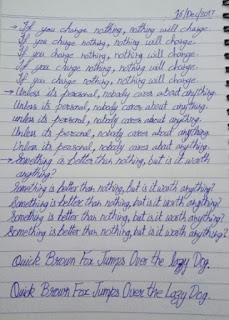 15/Dec/2017
→ If you change nothing, nothing will change.
If you change nothing, nothing will change.
If you change nothing, nothing will change.
If you change nothing, nothing will change.
If you change nothing, nothing will change.
→ Unless its personal, nobody cares about anything.
Unless its personal, nobody cares about anything.
unless its personal, nobody cares about anything.
Unless its personal, nobody cares about anything.
Unless its personal, nobody cares about anything.
→ Something is better than nothing, but is it worth
anything?
Something is better than nothing, but is it worth anything?
Something is better than nothing, but is it worth anything?
Something is better than nothing, but is it worth anything?
Something is better than nothing, but is it worth anything?
Quick Brown Fox Jumps Over the Lazy Dog.
Quick Brown Fox Jumps Over the Lazy Dog.